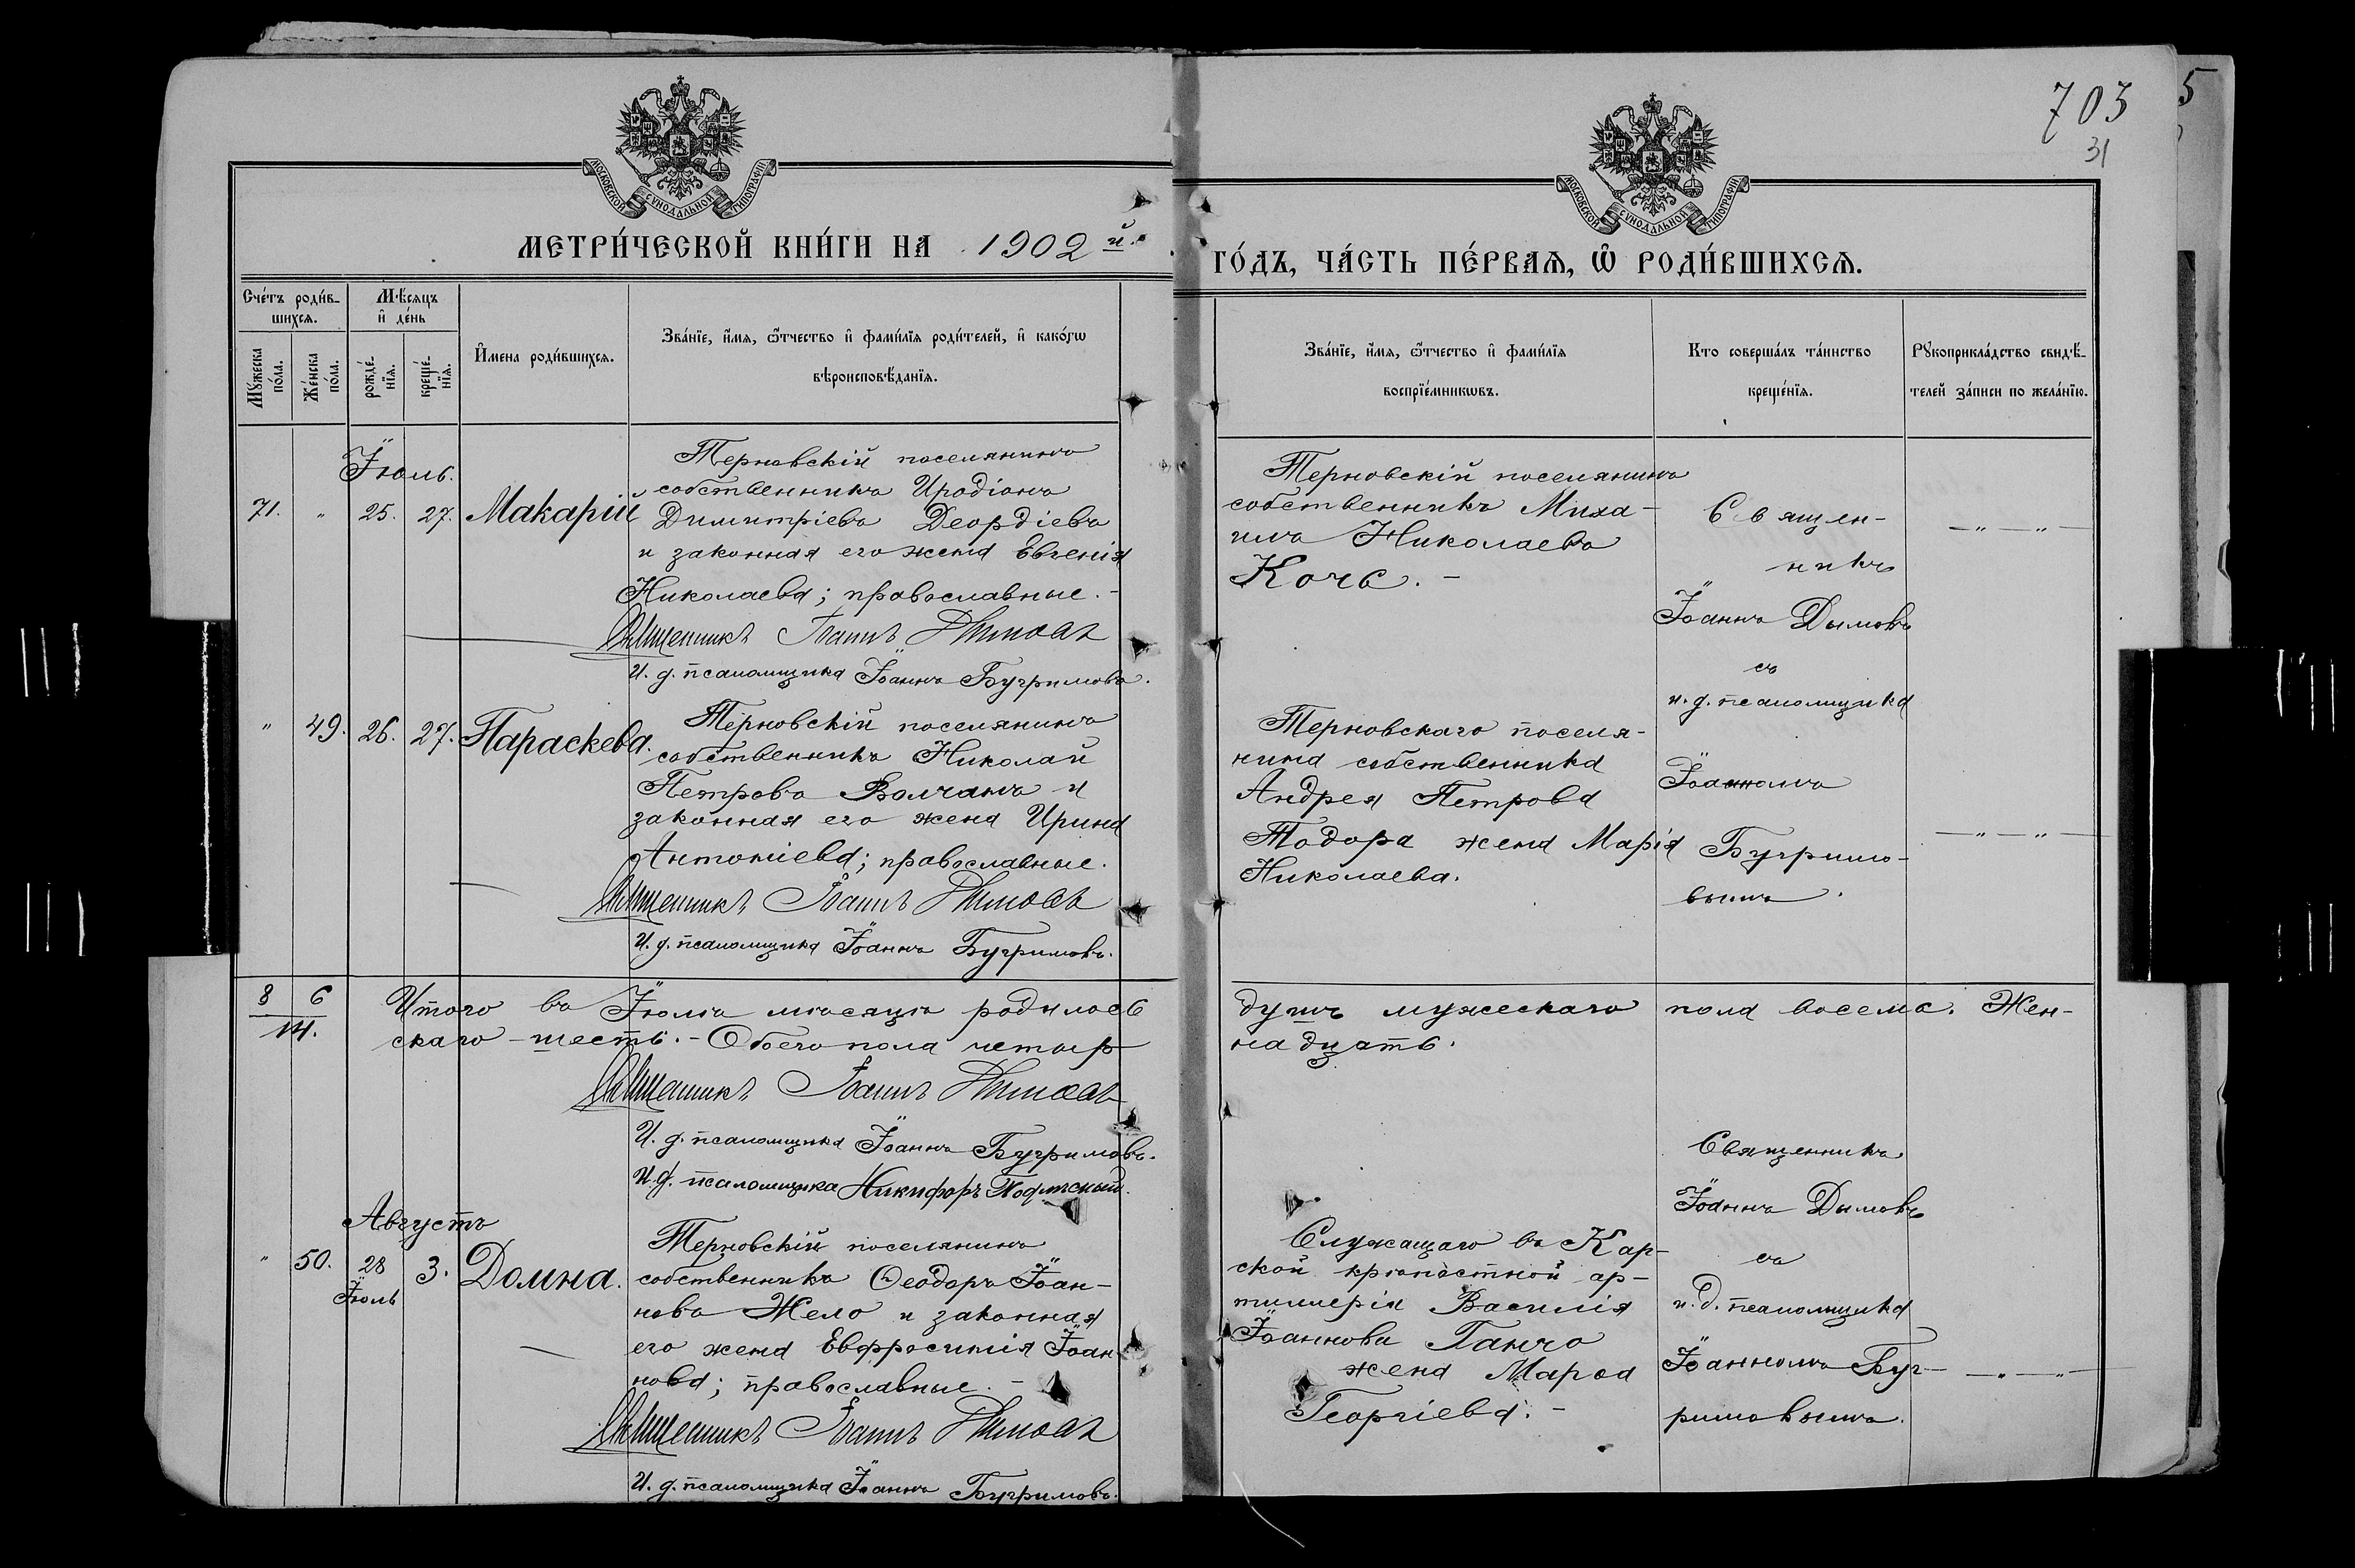 703
31
МОСКОВСКОЙ СѴНОДАЛЬНОЙ ТИПОГРАФІИ
МОСКОВСКОЙ СѴНОДАЛЬНОЙ ТИПОГРАФІИ
МЕТРИ́ЧЕСКОЙ КНИ́ГИ НА 1902й.
ГО́ДЪ, ЧА́СТЬ ПЕ́РВАѦ, Ѡ҆ РОДИ́ВШИХСѦ.
Сче́тъ роди́в-
шихсѧ.
Мѣ́сѧцъ
и҆ де́нь
Мꙋ́жеска
по́ла.
Же́нска
по́ла.
рожде́-
нїѧ.
креще́-
нїѧ.
И҆́мена роди́вшихсѧ.
Зва́нїе, и҆́мѧ, ѻ҆́тчество и҆ фами́лїѧ роди́телей, и҆ како́гѡ
вѣроисповѣ́данїѧ.
Зва́нїе, и҆́мѧ, ѻ҆́тчество и҆ фами́лїѧ
воспрїе́мникѡвъ.
Кто соверша́лъ та́инство
креще́нїѧ.
Рꙋкоприкла́дство свидѣ́-
телей за́писи по жела́нїю.
Іюль.
71. „ 25. 27. Макарій
Терновскій поселянинъ
собственникъ Иродіонъ
Димитріевъ Деордіевъ
и законная его жена Евгенія
Николаева; православные.-
Священникъ Іоаннъ Дымовъ
И. д. псаломщика Іоаннъ Бугримовъ.
Терновскій поселянинъ
собственникъ Миха-
илъ Николаевъ
Кочь.-
Священ-
никъ
Іоаннъ Дымовъ
съ
и. д. псаломщика
Іоанномъ
Бугримо-
вымъ.
— „ — „ —
„ 49. 26. 27. Параскева.
Терновскій поселянинъ
собственникъ Николай
Петровъ Волчанъ и
законная его жена Ирина
Антоніева; православные.
Священникъ Іоаннъ Дымовъ
И. д. псаломщика Іоаннъ Бугримовъ.
Терновскаго поселя-
нина собственника
Андрея Петрова
Тодора жена Марія
Николаева.
— „ — „ —
8 6
14.
Итого въ Іюлѣ мѣсяцѣ родилось душъ мужескаго пола восемь. Жен-
скаго - шесть. - Обоего пола четыр надцать.
Священникъ Іоаннъ Дымовъ
И. д. псаломщика Іоаннъ Бугримовъ.
И. д. псаломщика Никифоръ Подлѣсный.
Августъ
„ 50. 28 3. Домна.
Іюль
Терновскій поселянинъ
собственникъ Ѳеодоръ Іоан-
новъ Жело и законная
его жена Евфросинія Іоан-
нова; православные.-
Священникъ Іоаннъ Дымовъ
И. д. псаломщика Іоаннъ Бугримовъ.
Служащаго въ Кар-
ской крѣпостной ар-
тиллеріи Василія
Іоаннова Ганчо
жена Мароа
Георгіева.-
Священникъ
Іоаннъ Дымовъ
съ
и. д. псаломщика
Іоанномъ Буг-
римовымъ.
— „ — „ —